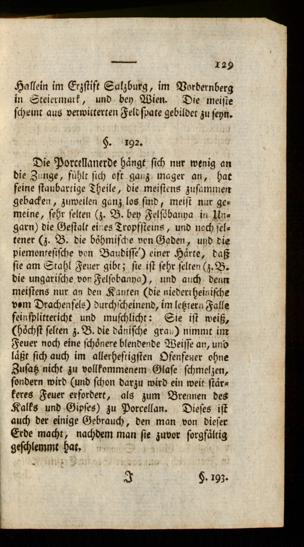 129
Hallein im Erzstift Salzburg, im Vordernberg
in Steiermark, und bey Wien. Die meiste
scheint aus verwitterten Feldspate gebildet zu seyn.
§. 192.
Die Porcellanerde hängt sich nur wenig an
die Zunge, fühlt sich oft ganz mager an, hat
feine staubartige Theile, die meistens zusammen
gebacken, zuweilen ganz los sind, meist nur ge-
meine, sehr selten (z. B. bey Felsöbanya in Un-
garn) die Gestalt eines Tropfsteins, und noch sel-
tener (z. B. die böhmische von Gaden, und die
piemontesische von Baudisse) einer Härte, daß
sie am Stahl Feuer gibt; sie ist sehr selten (z. B.
die ungarische von Felsobanya), und auch denn
meistens nur an den Kanten (die niederrheinische
vom Drachenfels) durchscheinend, im letztern Falle
feinsplittericht und muschlicht: Sie ist weiß,
(höchst selten z. B. die dänische grau) nimmt im
Feuer noch eine schönere blendende Weisse an, und
läßt sich auch im allerheftigsten Ofenfeuer ohne
Zusatz nicht zu vollkommenem Glase schmelzen,
sondern wird (und schon darzu wird ein weit stär-
keres Feuer erfordert, als zum Brennen des
Kalks und Gipses) zu Porcellan. Dieses ist
auch der einige Gebrauch, den man von dieser
Erde macht, nachdem man sie zuvor sorgfältig
geschlemmt hat.
J §. 193.